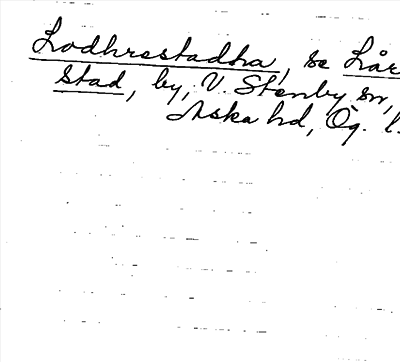 Lodhrestadha, se Lår
stad, by, V. Stenby sn,
Aska hd, Ög. l.